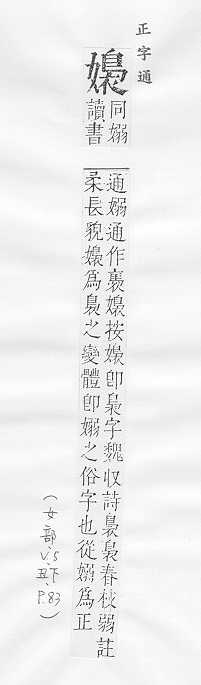 正字通
嬝
同嫋
讀書
通嫋通作裊嬝按嬝即裊字魏収詩裊裊春枝弱註
柔長貌嬝為裊之變體即嫋之俗字也從嫋為正
(女部、V.5、丑下、P.83)